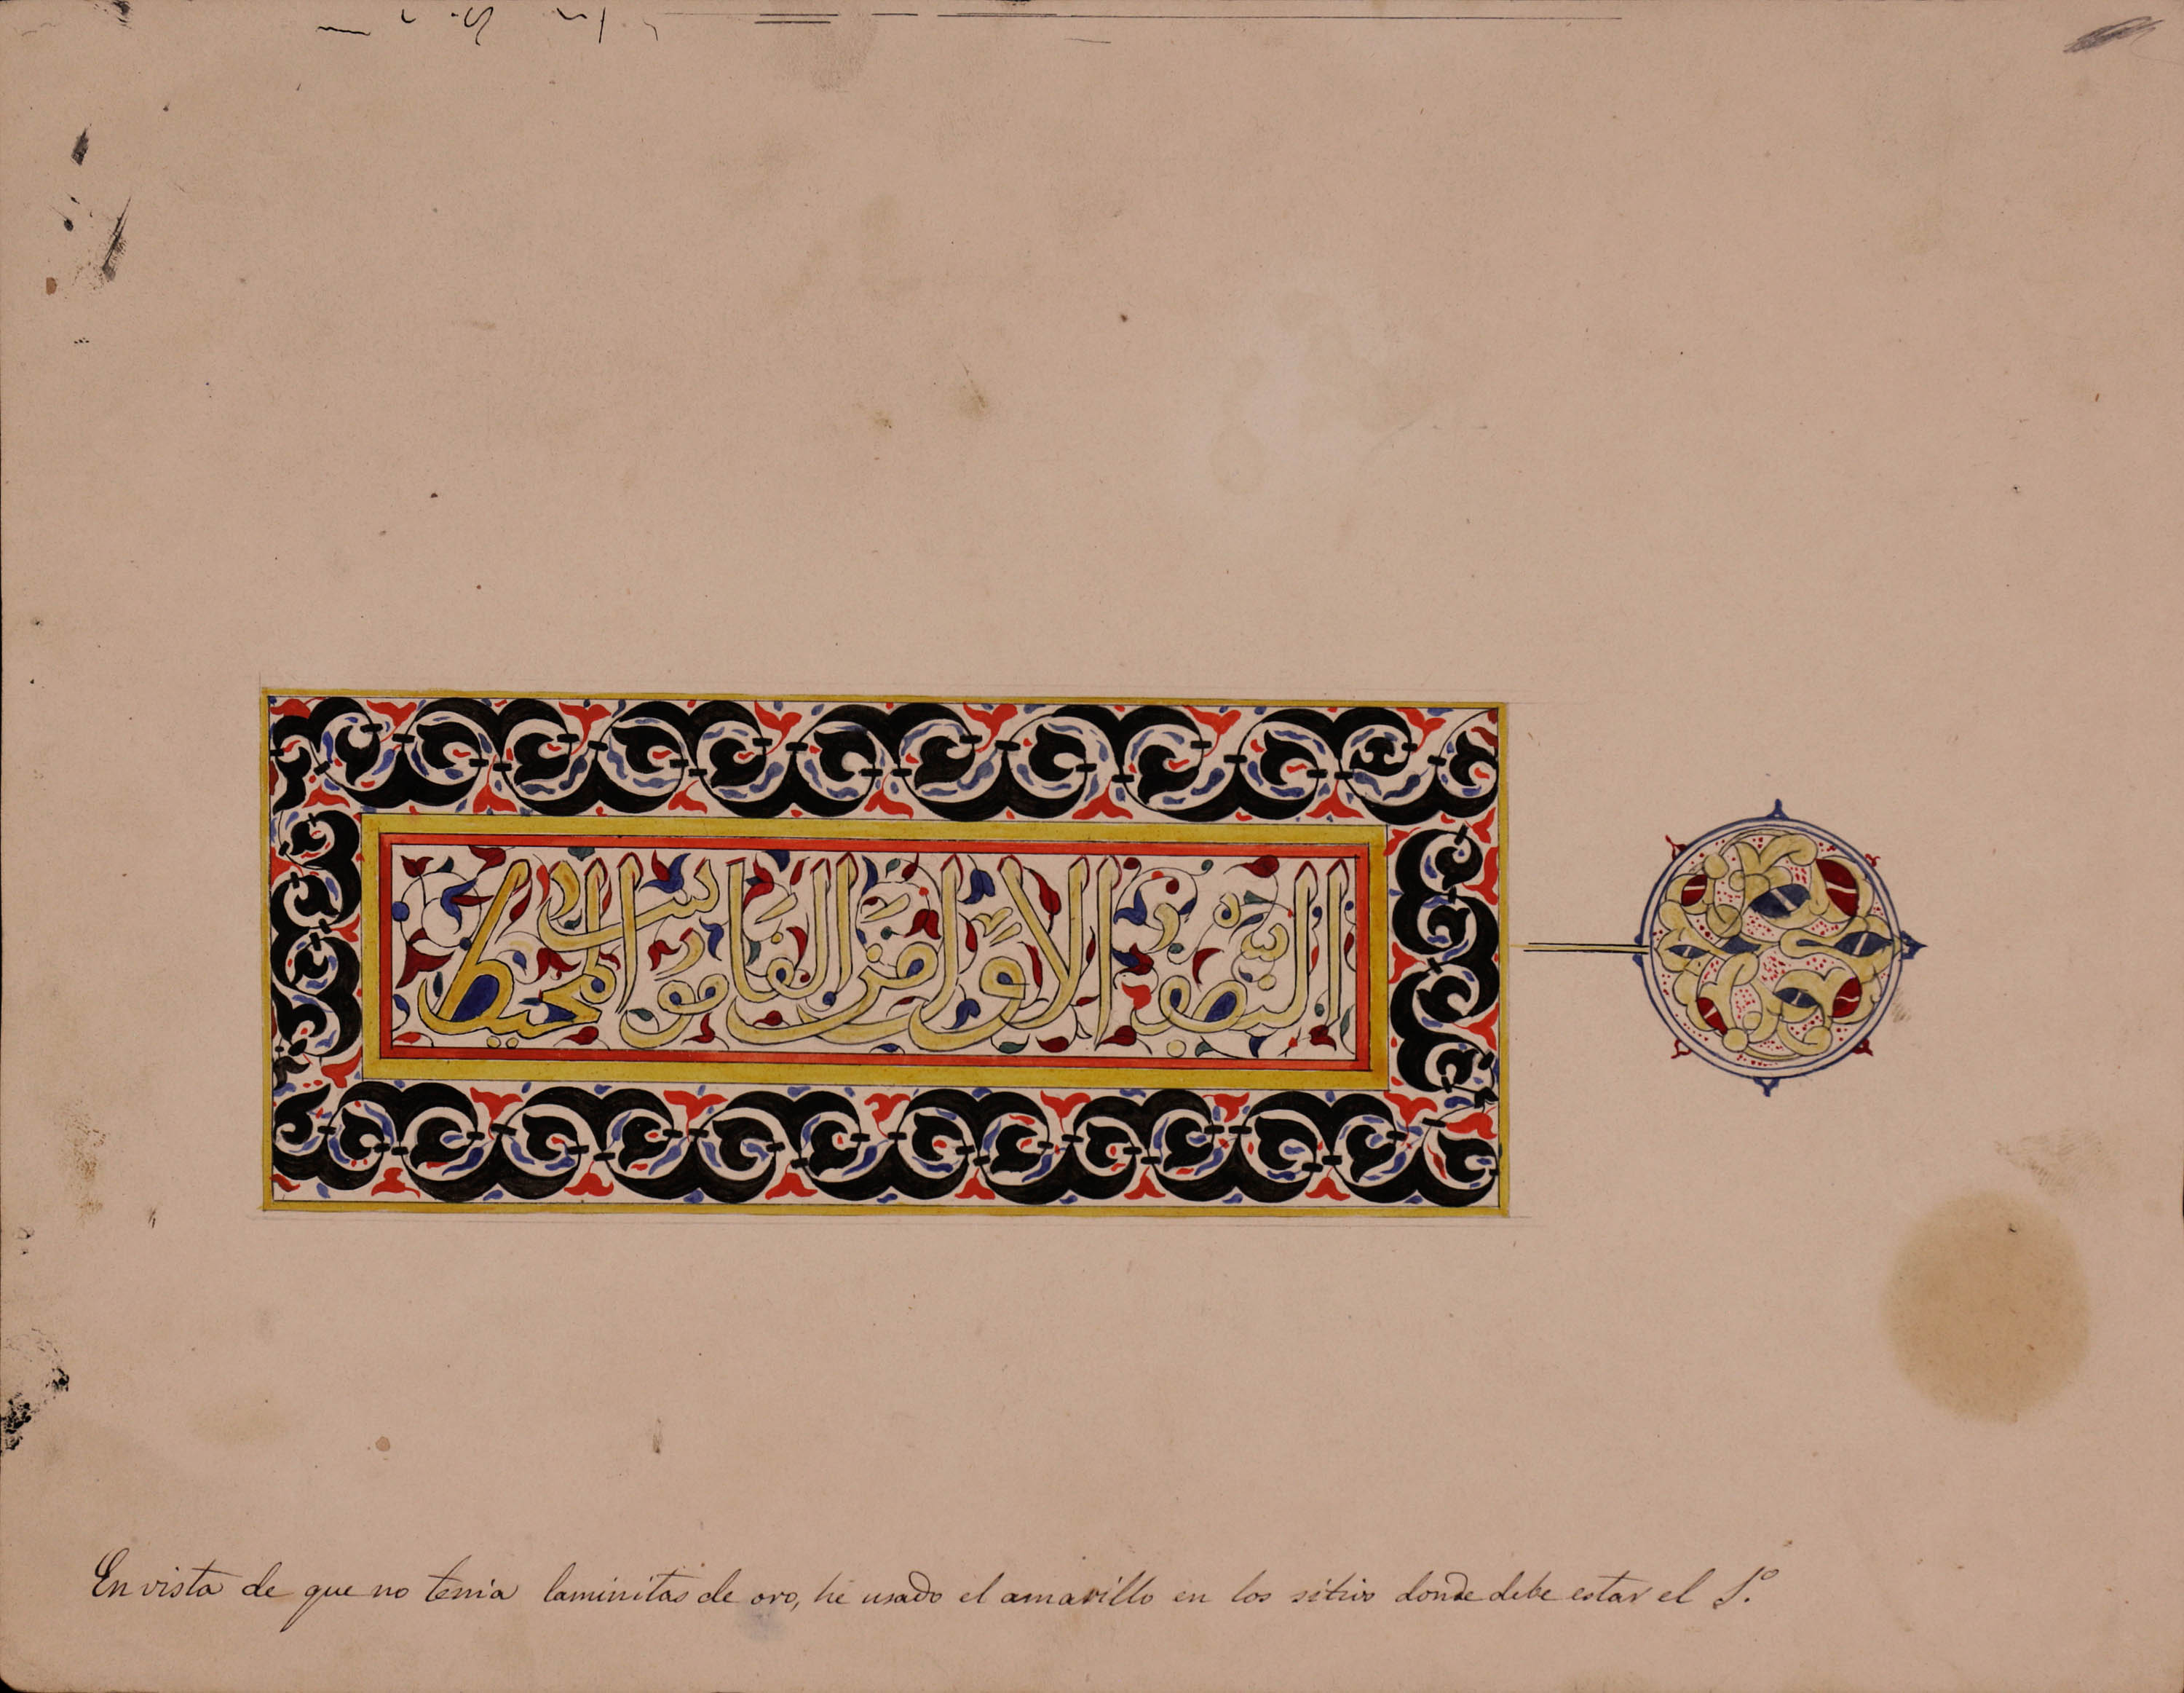 النصف الاول من القاموس المحيط
En vista de que no tenia laminitas de oro, he usado el amarillo en los sitios donde debe estar el 1º.